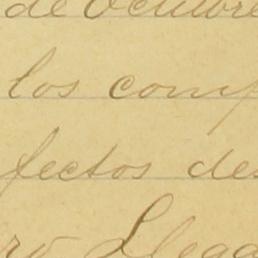 de Octubre
los comp
fectos des
ro Llega